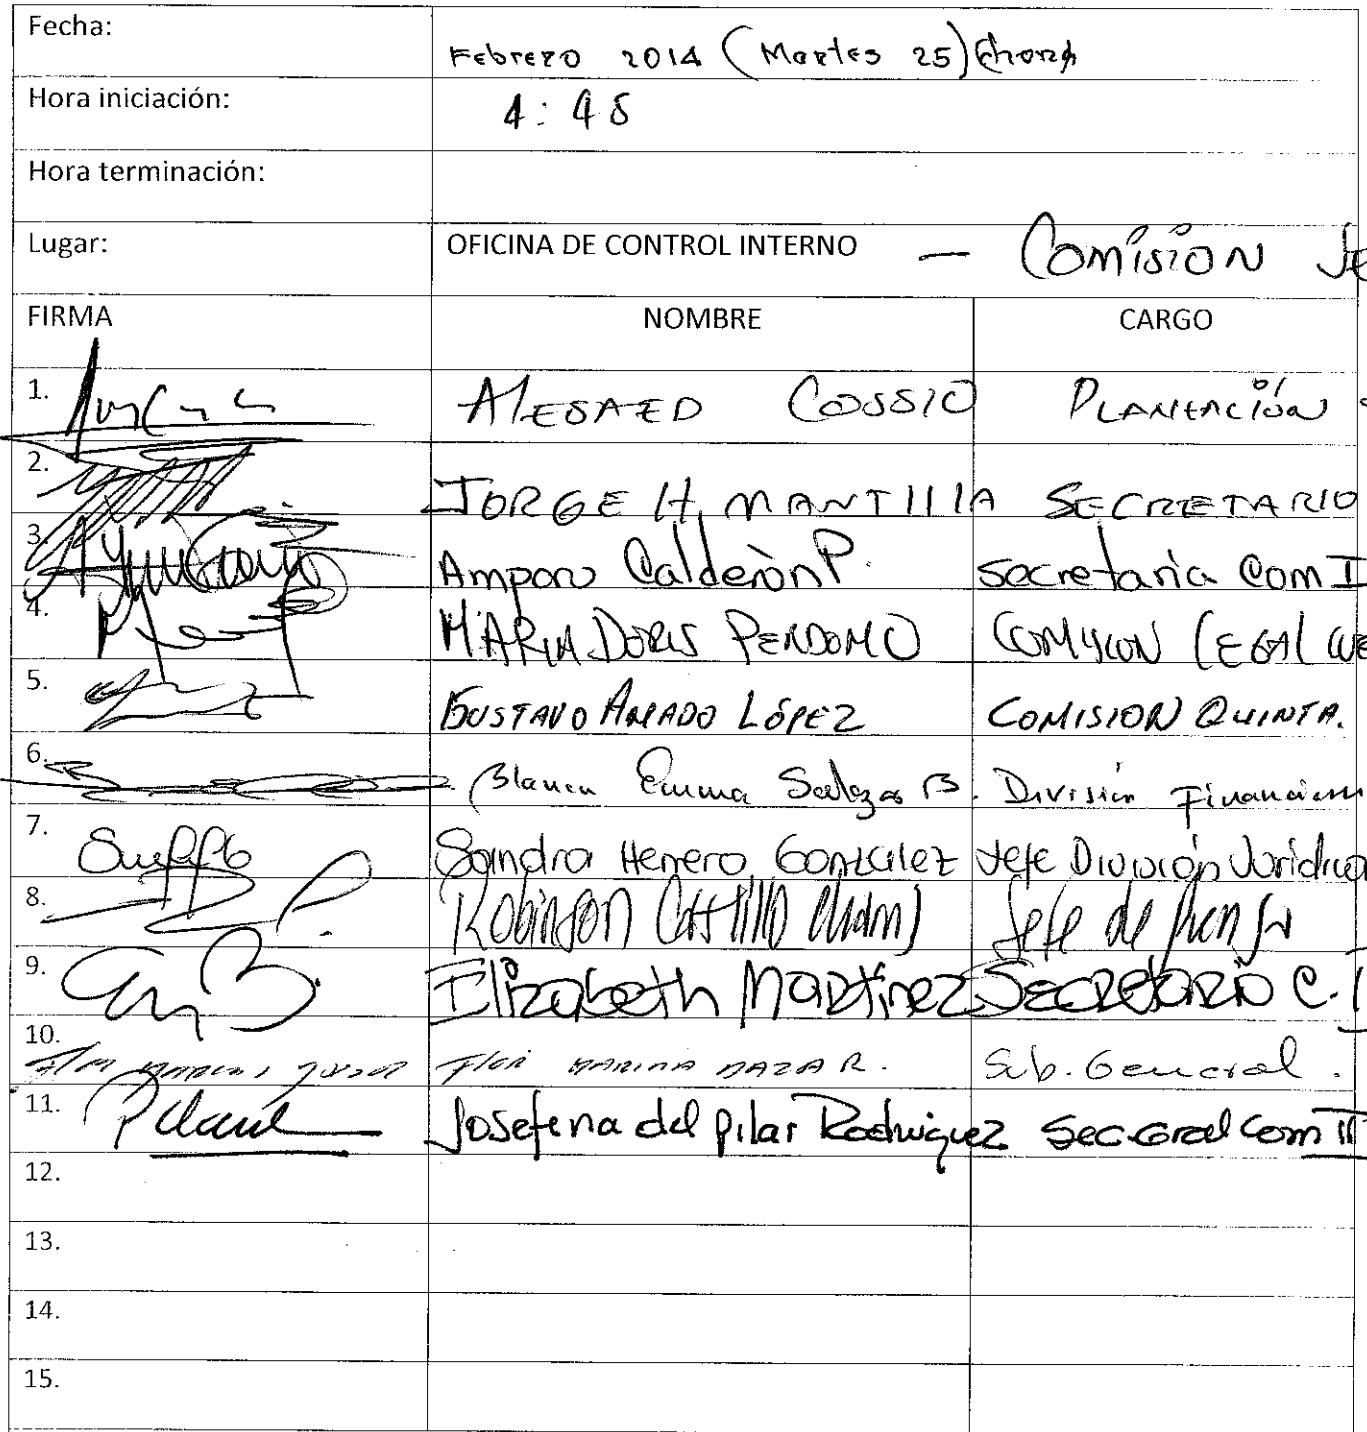 Fecha:
Febrero 2014 (Martes 25)
Hora iniciación:
4:45
Hora terminación:
Lugar:
OFICINA DE CONTROL INTERNO – Comisión
FIRMA NOMBRE CARGO
1. COSSIO PLANEACIÓN
2. JORGE H. MANTILLA SECRETARIO
3. Amparo Calderón P. Secretaria Com I
4. MARIA DORIS PERDOMO COMISION LEGAL
5. GUSTAVO AMADO LÓPEZ COMISION QUINTA.
6. Blanca Emma Salazar B. División Financiera
7. Sandra Herrero González Jefe División Jurídica
8. Robinson Castillo Jefe de prensa
9. Elizabeth Martinez Secretario C.
10. Flor MARINA DAZA R. Sub. General.
11. Josefina del Pilar Rodriguez Sec. Gral Com
12.
13.
14.
15.